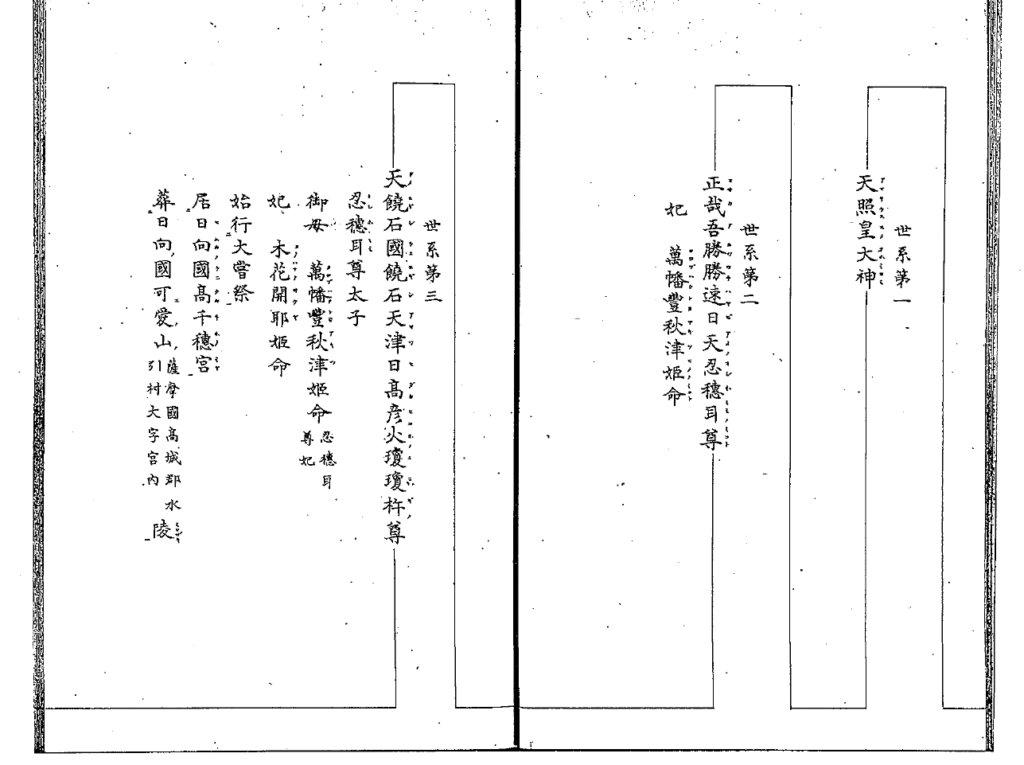 世系第一
天照皇大神
世系第二
正哉吾勝勝速日天忍穗耳尊
妃　萬幡豐秋津姫命
世系第三
天饒石國饒石天津日高彦火瓊瓊杵尊
忍穗耳尊太子
御母　萬幡豐秋津姫命忍穗耳尊妃
妃　木花開耶姫命
始行大嘗祭
居日向國高千穗宮
葬日向國可愛山薩摩國高城郡水引村大字宮內陵